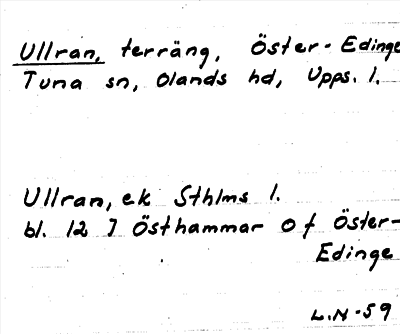 Ullran, terräng, Öster-Edinge
Tuna sn, Olands hd, Upps. l.
Ullran, ek Sthlms l.
bl. 12 I Östhammar of Öster-
Edinge
L.N-59